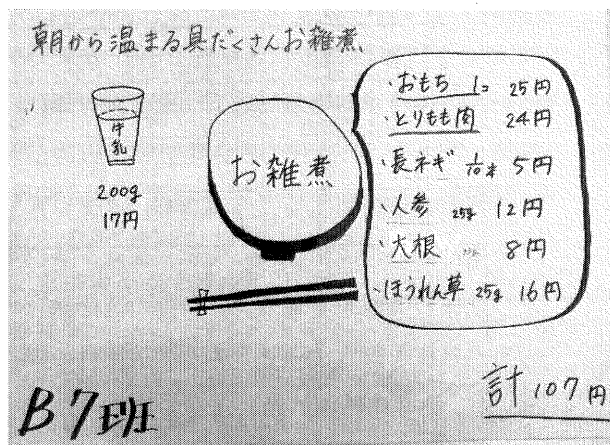 朝から温まる具だくさんお雑煮
牛乳
200g
17円
お雑煮
・おもち 1コ 25円
・とりもも肉 24円
・長ネギ 1/10本 5円
・人参 25g 12円
・大根 8円
・ほうれん草 25g 16円
計107円
B7班